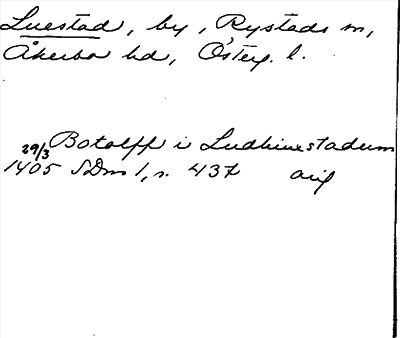 Luestad, by, Rystads sn,
Åkerbo hd, Österg. l.
29/3 Botolff i Ludhinestadum
1405 SDns 1, s. 437 orig